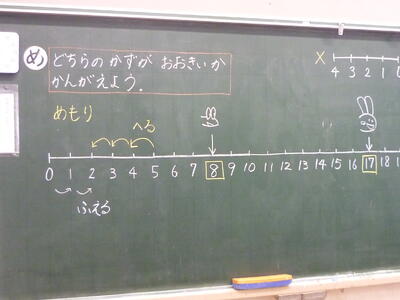 め
どちらの かずが おおきいか
かんがえよう.
x
4 3 2 1 0
めもり
へる
0 1 2 3 4 5 6 7 8 9 10 11 12 13 14 15 16 17 18
ふえる